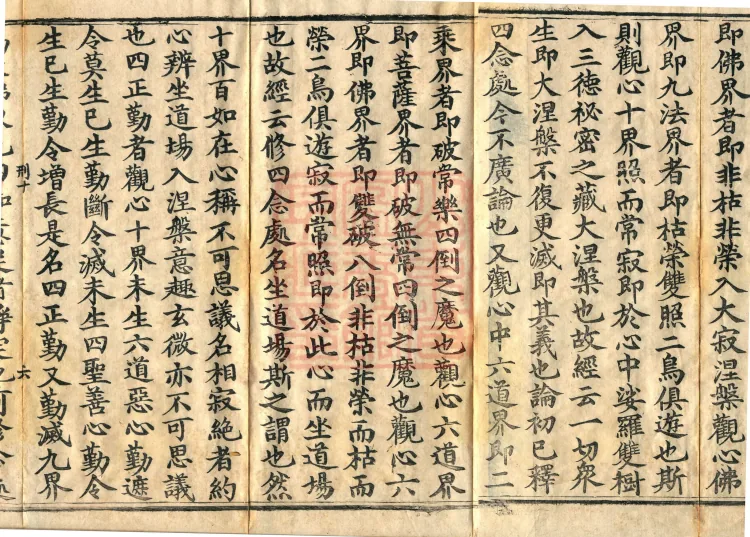 即佛界者即非枯非榮入大寂涅槃觀心佛
界即九法界者即枯榮雙照二鳥俱遊也斯
則觀心十界照而常寂即於心中娑羅雙樹
入三德祕密之藏大涅槃也故經云一切衆
生即大涅槃不復更滅即其義也論初已釋
四念處今不廣論也又觀心中六道界即二
乘界者即破常樂四倒之魔也觀心六道界
即菩薩界者即破無常四倒之魔也觀心六
界即佛界者即雙破八倒非枯非榮而枯而
榮二鳥俱遊寂而常照即於此心而坐道場
也故經云修四念處名坐道場斯之謂也然
十界百如在心稱不可思議名相寂絕者約
心辨坐道場入涅槃意趣玄微亦不可思議
也四正勤者觀心十界未生六道惡心勤遮
令莫生已生勤斷令滅未生四聖善心勤令
生已生勤令增長是名四正勤又勤滅九界
刑十
六